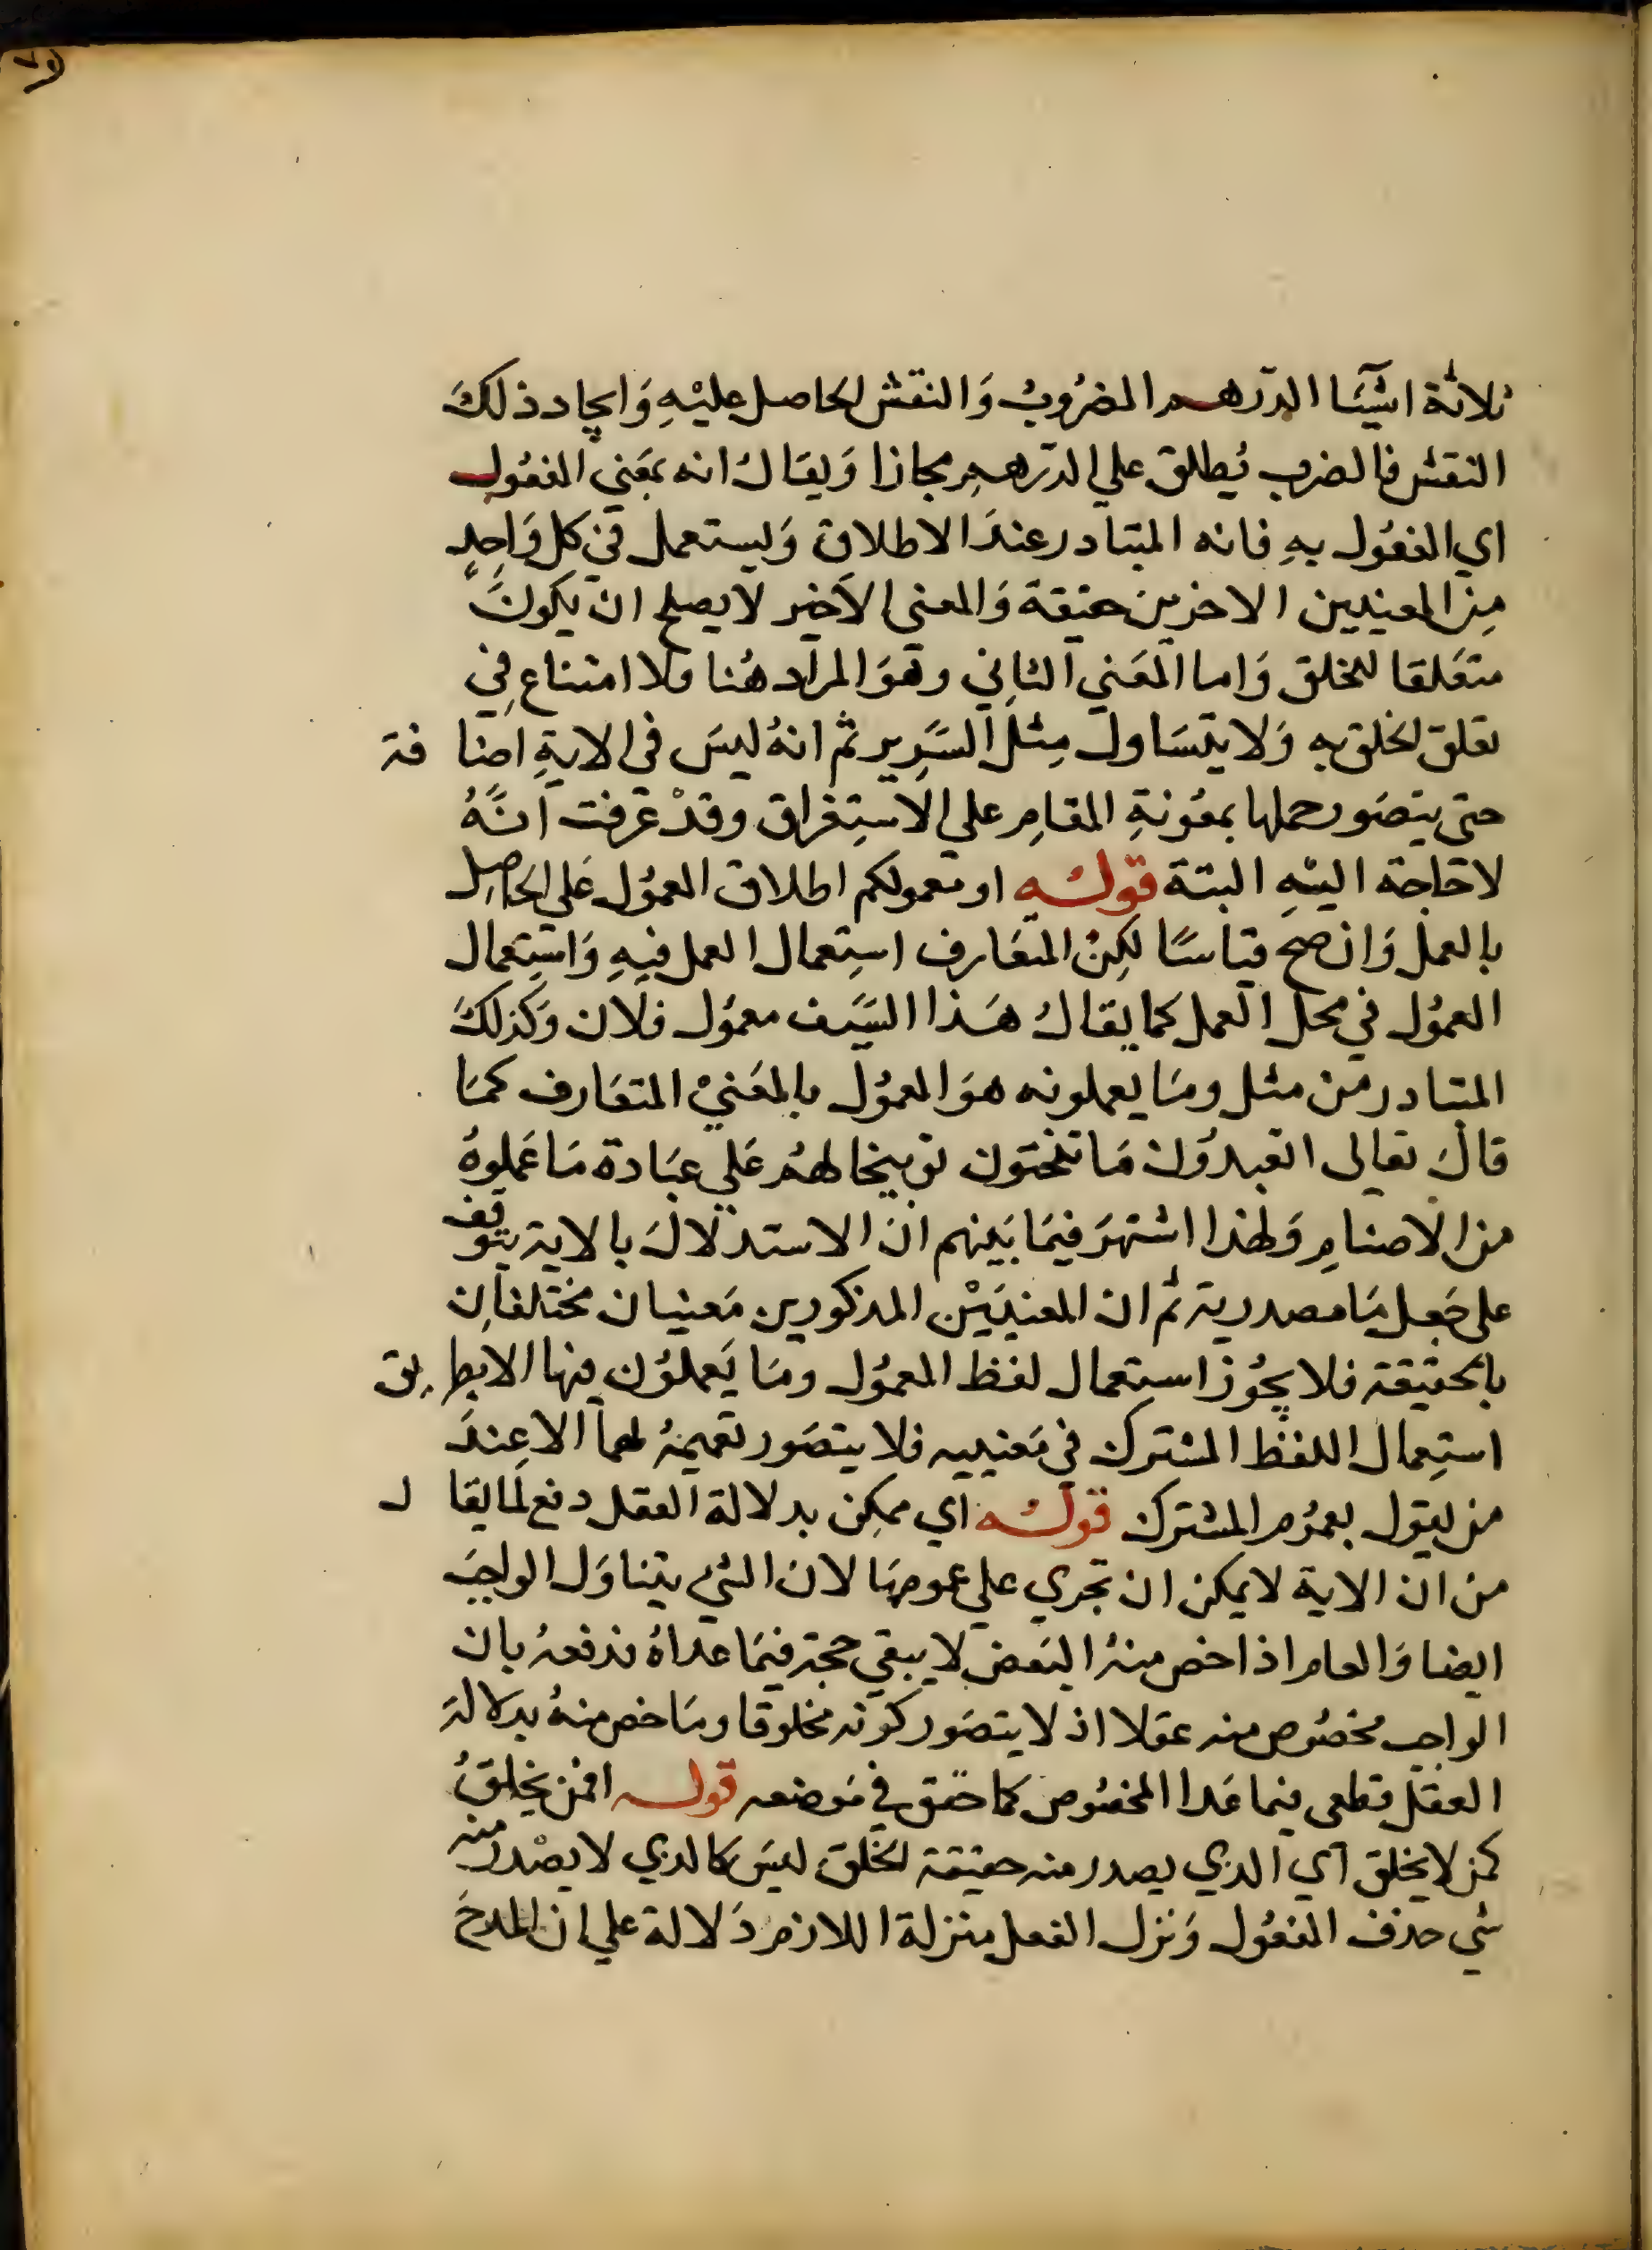 ثلاثة اشيآء الدرهم المضروب والنقش الحاصل عليه وايجاد ذلك
النقش فالضرب يطلق علي الدرهم مجازا ويقال انه بمعني المفعول
اي المفعول به فانه المتبادر عند الاطلاق ويستعمل في كل واحد
من المعنيين الاخرين حقيقة والمعني الاخير لا يصلح ان يكون
متعلقا للخلق واما المعني الثاني وهو المراد هنا ولا امتناع في
تعلق الخلق به ولا يتساول مثل السرير ثم انه ليس في الاية اضافة
حتى يتصور حملها بمعونة المقام علي الاستغراق وقد عرفت انه
لا حاجة اليه البتة قوله او معمولكم اطلاق المعمول علي الحاصل
بالعمل وان صح قياسا لكن المتعارف استعمال العمل فيه واستعمال
المعمول في محل العمل كما يقال هذا السيف معمول فلان وكذلك
المتبادر من مثل وما يعملونه هو المعمول بالمعني المتعارف كما
قال تعالى اتعبدون ما تنحتون توبيخا لهم علي عبادة ما عملوه
من الاصنام ولهذا اشتهر فيما بينهم ان الاستدلال بالاية يتوقف
على جعل ما مصدرية ثم ان المعنيين المذكورين معنيان مختلفان
بالحقيقة فلا يجوز استعمال لفظ المعمول وما يعملون فيها الا بطريق
استعمال اللفظ المشترك في معنييه فلا يتصور تعميمه لهما الا عند
من يقول بعموم المشترك قوله اي ممكن بدلالة العقل دفع لما يقال
من ان الاية لا يمكن ان تجري علي عمومها لان الشي يتناول الواجب
ايضا والعام اذا خص منه البعض لا يبقي حجة فيما عداه فدفعه بان
الواجب مخصوص منه عقلا اذ لا يتصور كونه مخلوقا وما خص منه بدلالة
العقل قطعي فيما عدا المخصوص كما حقق في موضعه قوله افمن يخلق
كمن لا يخلق اي الذي يصدر منه حقيقة الخلق ليس كالذي لا يصدر منه
شي حذف المفعول ونزل الفعل منزلة اللازم دلالة علي ان المدح